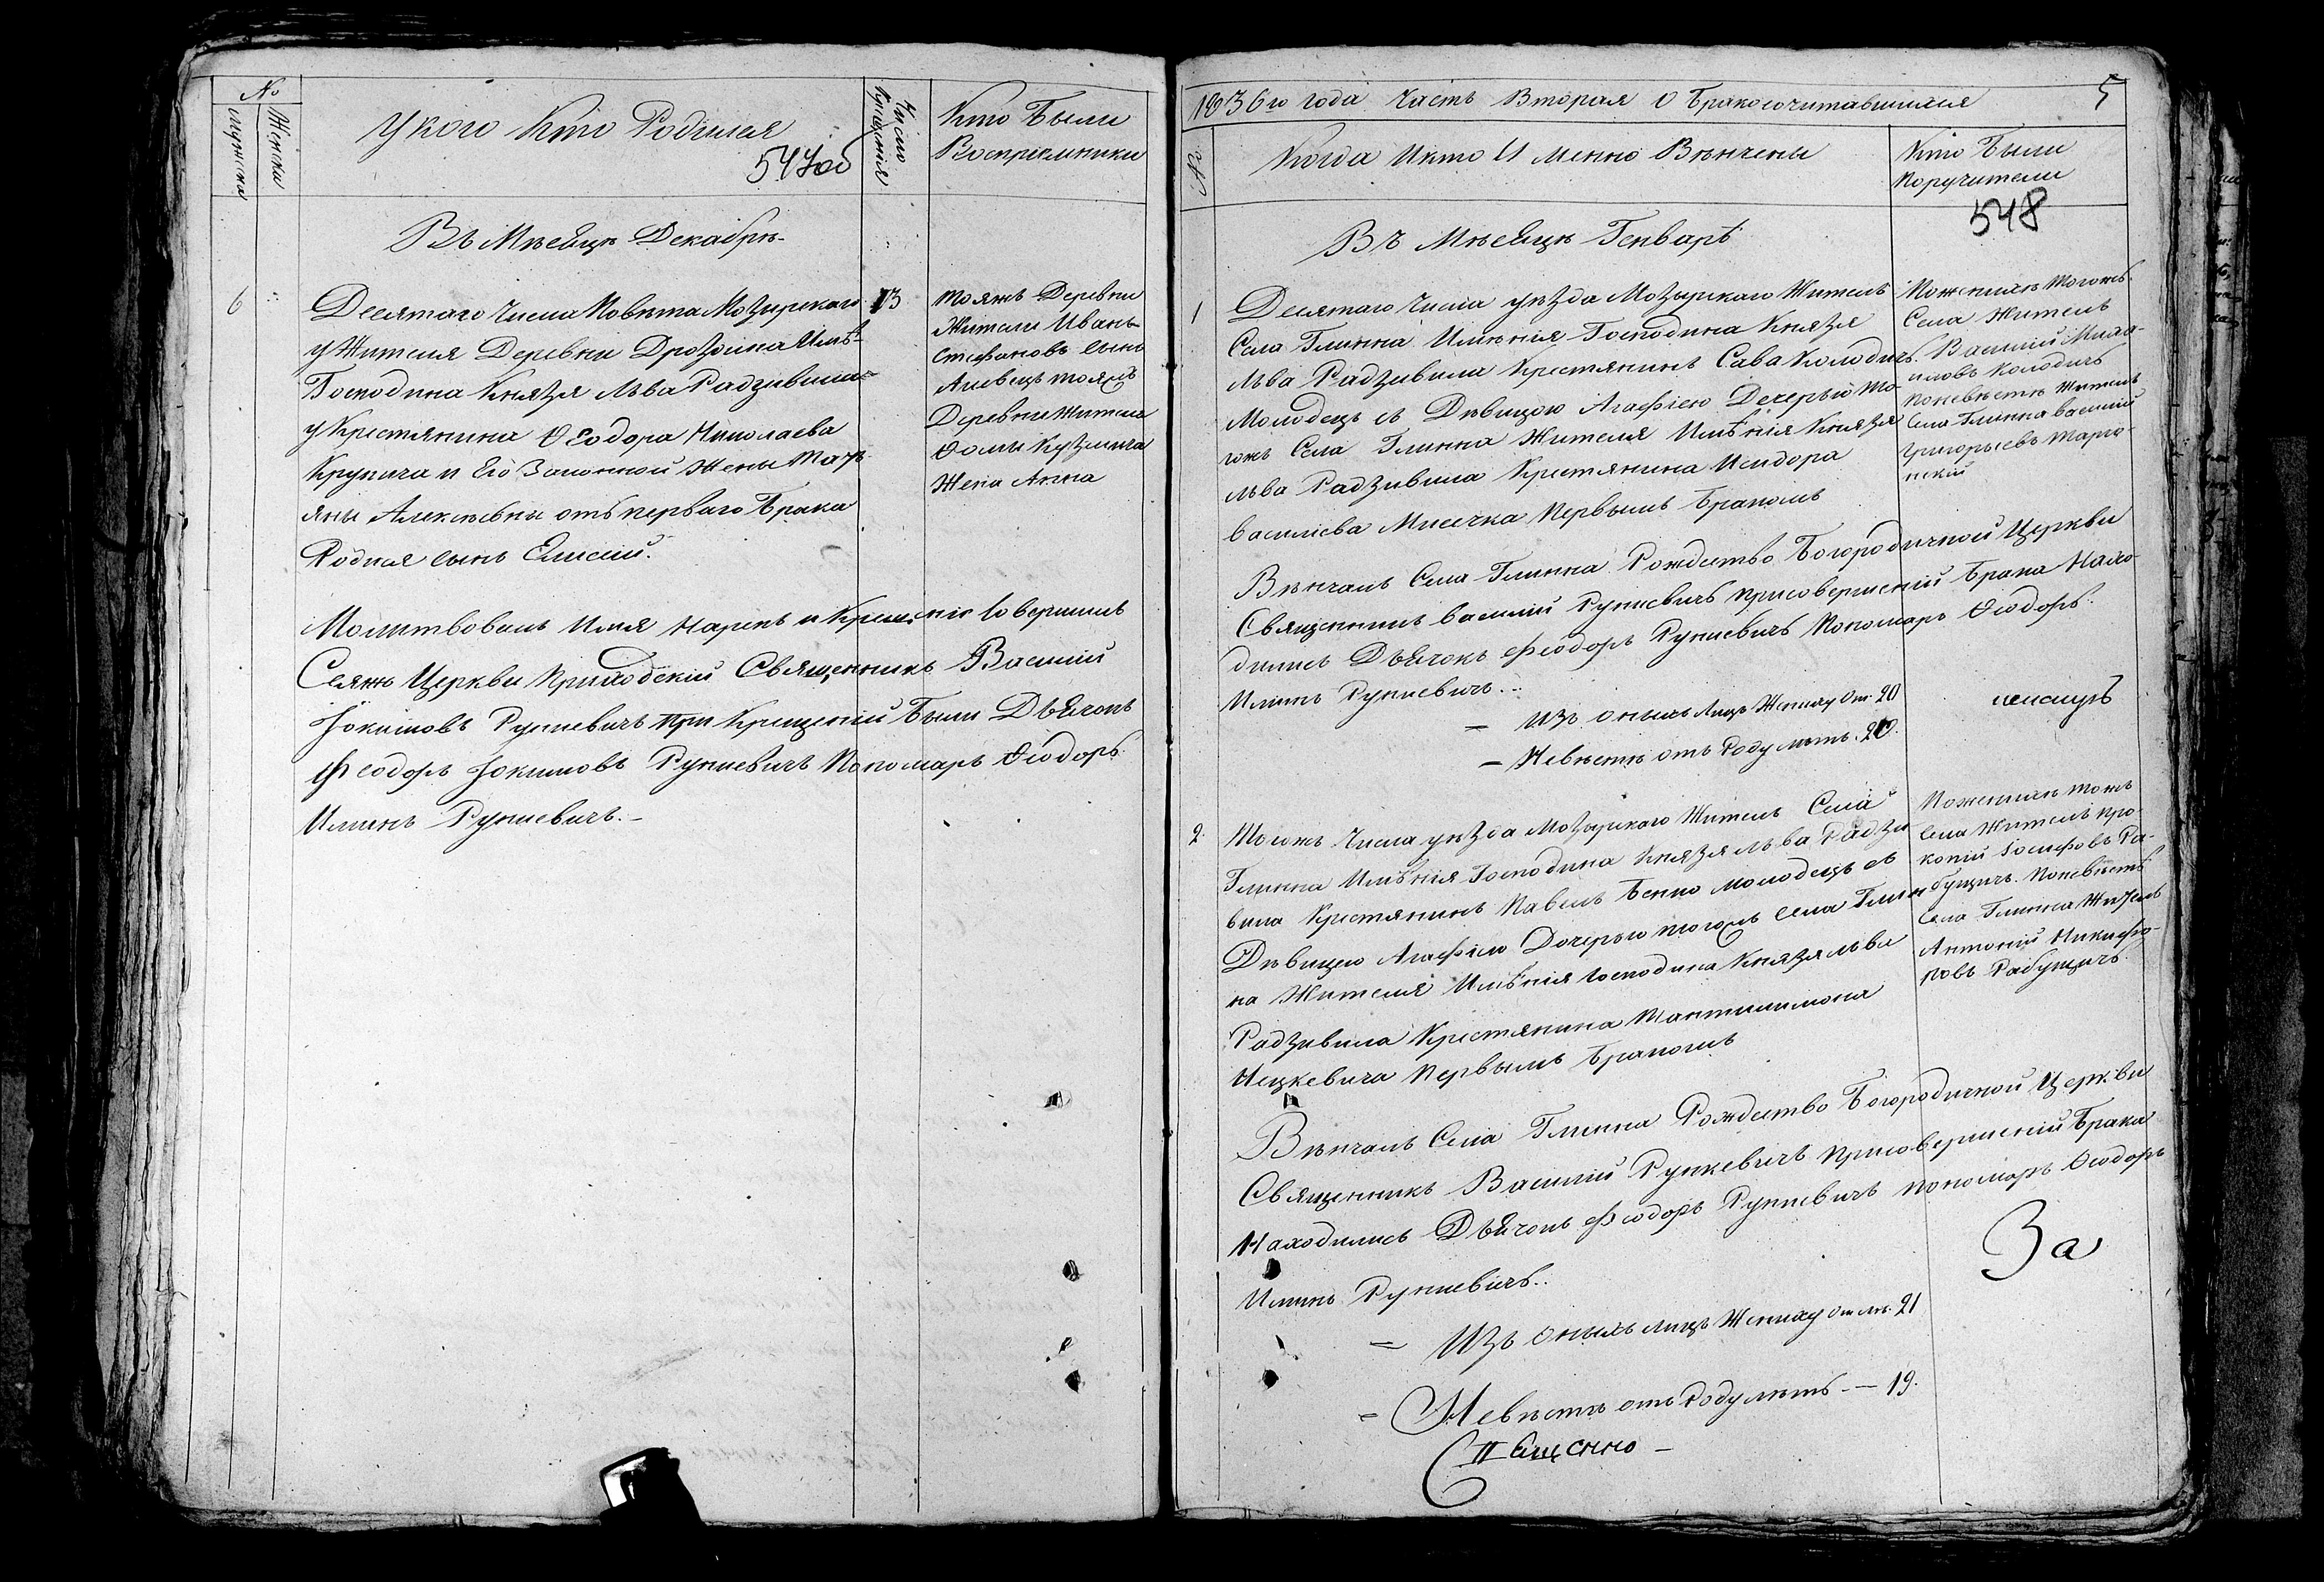 №
Мужска
Женска
У кого Кто Родился
547об
Число Крещенія
Кто Были
Воспреемники
Въ Мѣсяцѣ Декабрѣ
6
13
Десятаго Числа Повѣта Мозырскаго
у Жителя Деревни Дрозоина Имѣ-
Господина Князя Льва Радзивила
у Крестянина Ѳеодора Николаева
Крупича и Его Законной Жены Мар-
яны Алексѣевны отъ перваго Брака
Родился сынъ Елисей.
тояжъ Деревни
Житель Иванъ
Стефановъ сынъ
тояжъ
Деревни Жителя
Ѳомы Кузмича
Жена Анна
Молитвовалъ Имя Нарекъ и Крещеніе Совершилъ
Сеяжъ Церкви Приходскій Священникъ Василий
Іокимовъ Рункевичъ при Крещеніи Были Дьячокъ
Феодоръ Іокимовъ Рункевичъ Пономарь Ѳеодоръ
Илиинъ Рункевичъ.
1836го года Часть Вторая О Бракосочитавшихся
5
№
Когда И кто И Менно Венчены
Кто Были
Поручители
548
Въ Мѣсяцѣ Генварѣ
1
Десятаго Числа уѣзда Мозырскаго Житель
Села Глинна Имѣнія Господина Князя
Льва Радзивила Крестянинъ Сава Колодичъ
Молодецъ съ Дѣвицою Агафіею Дочерью то-
гожъ Села Глинна Жителя Имѣнія Князя
Льва Радзивила Крестянина Исидора
Василиева Мисечка Первымъ Бракомъ
По женихѣ тогожъ
Села Житель
Василий Миха-
иловъ Колодичъ
По невѣстѣ Житель
Села Глинна Василий
Григорьевъ Марго-
нский
Вѣнчалъ Села Глинна Рождество Богородичной Церкви
Священникъ Василий Рункевичъ при совершеніи Брака Нахо-
дились Дьячокъ Феодоръ Рункевичъ Пономарь Ѳеодоръ
Илиинъ Рункевичъ.
Изъ оныхъ Лицъ Жениху От 20
Невѣстѣ отъ Роду лѣтъ 20.
2
Тогожъ Числа уѣзда Мозырскаго Житель Села
Глинна Имѣнія Господина Князя Льва Радзи
вила Крестянинъ Павелъ Бенко Молодецъ съ
Дѣвицею Агафіею Дочерью тогожъ Села Глин
на Жителя Имѣнія Господина Князя Льва
Радзивила Крестянина Пантилимона
Ицкевича Первымъ Бракомъ
По женихѣ тожъ
Села Житель Про-
копий Іосифовъ Ра-
бущичъ. По невѣстѣ
Села Глинна Житель
Антоній Никифо-
ровъ Рабущичъ.
Вѣнчалъ Села Глинна Рождество Богородичной Церкви
Священникъ Василий Рункевичъ при совершеніи Брака
Находились Дьячокъ Феодоръ Рункевичъ Пономарь Ѳеодоръ
Илиинъ Рункевичъ.
За
Изъ оныхъ лицъ Жениху От лѣ. 21
Невѣстѣ отъ Роду лѣтъ — 19.